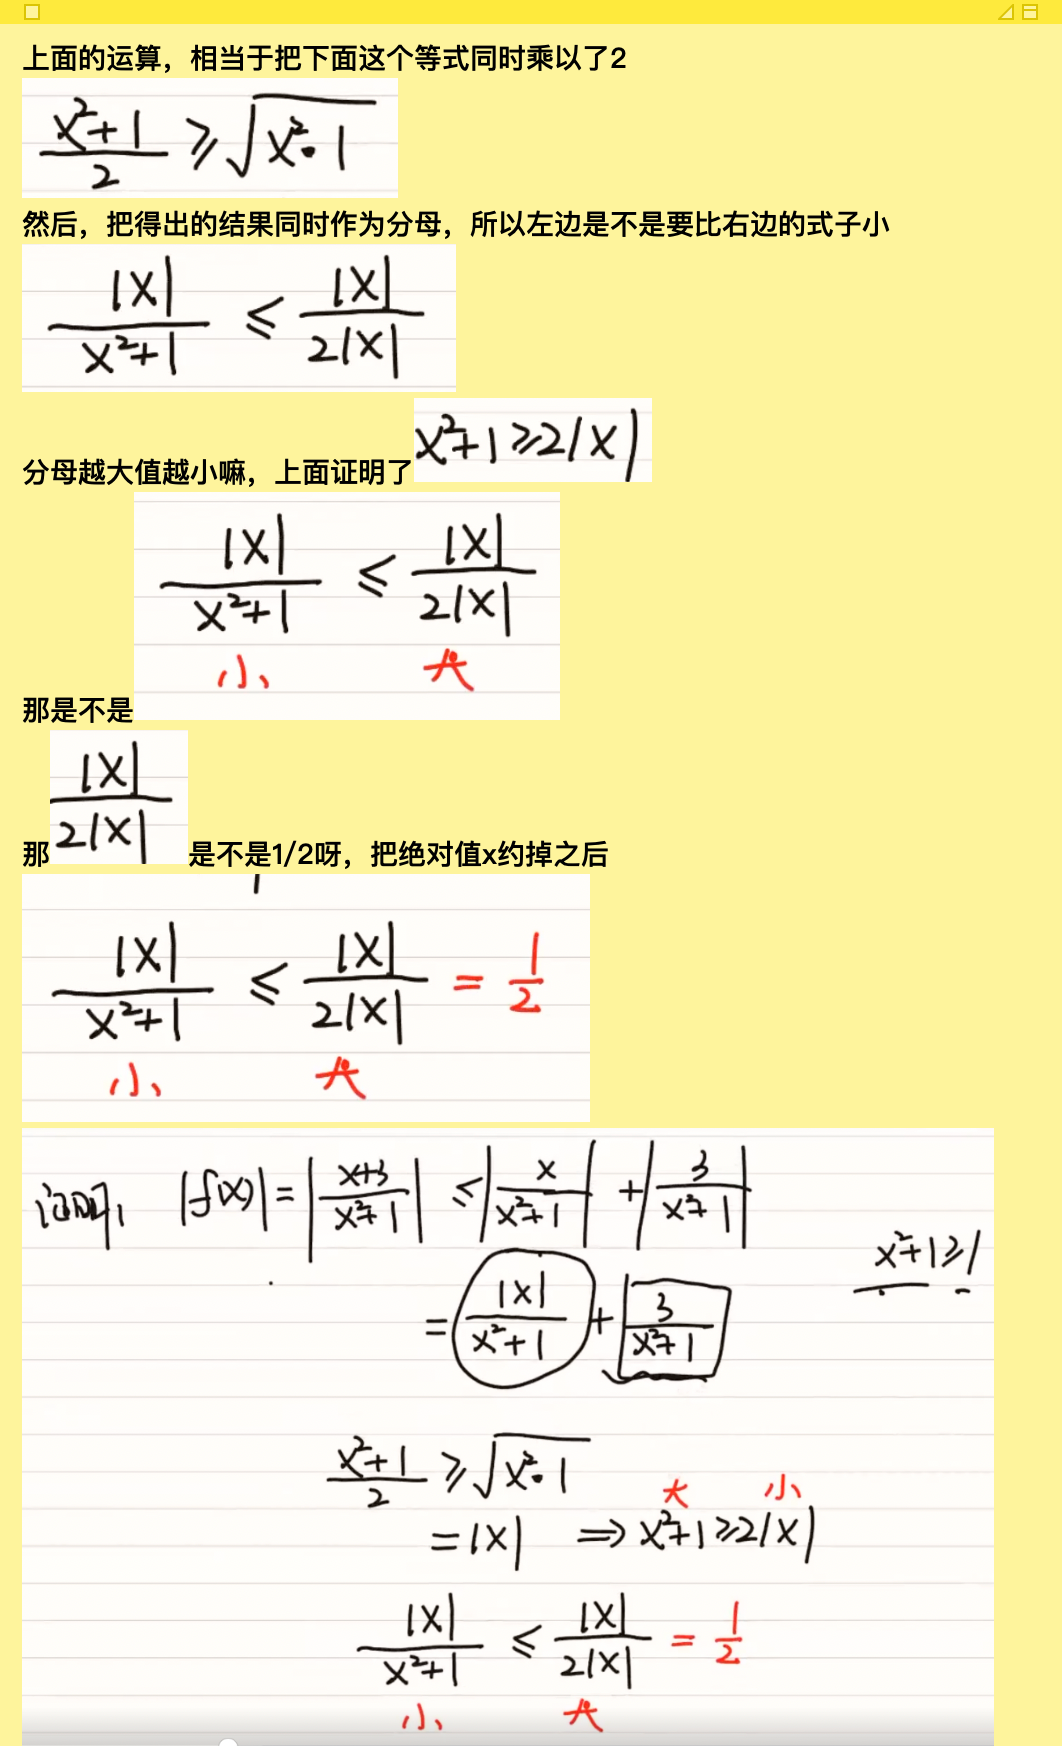 上面的运算，相当于把下面这个等式同时乘以了2
(x²+1)/2 ≥ √(x²·1)
然后，把得出的结果同时作为分母，所以左边是不是要比右边的式子小
|x|/(x²+1) ≤ |x|/(2|x|)
分母越大值越小嘛，上面证明了 x²+1≥2|x|
那是不是 |x|/(x²+1) ≤ |x|/(2|x|)
小 大
那 |x|/(2|x|) 是不是1/2呀，把绝对值x约掉之后
|x|/(x²+1) ≤ |x|/(2|x|) = 1/2
小 大
证明: |f(x)| = |(x+3)/(x²+1)| ≤ |x/(x²+1)| + |3/(x²+1)|
x²+1≥1
= |x|/(x²+1) + 3/(x²+1)
(x²+1)/2 ≥ √(x²·1)
大 小
= |x| ⇒ x²+1≥2|x|
|x|/(x²+1) ≤ |x|/(2|x|) = 1/2
小 大